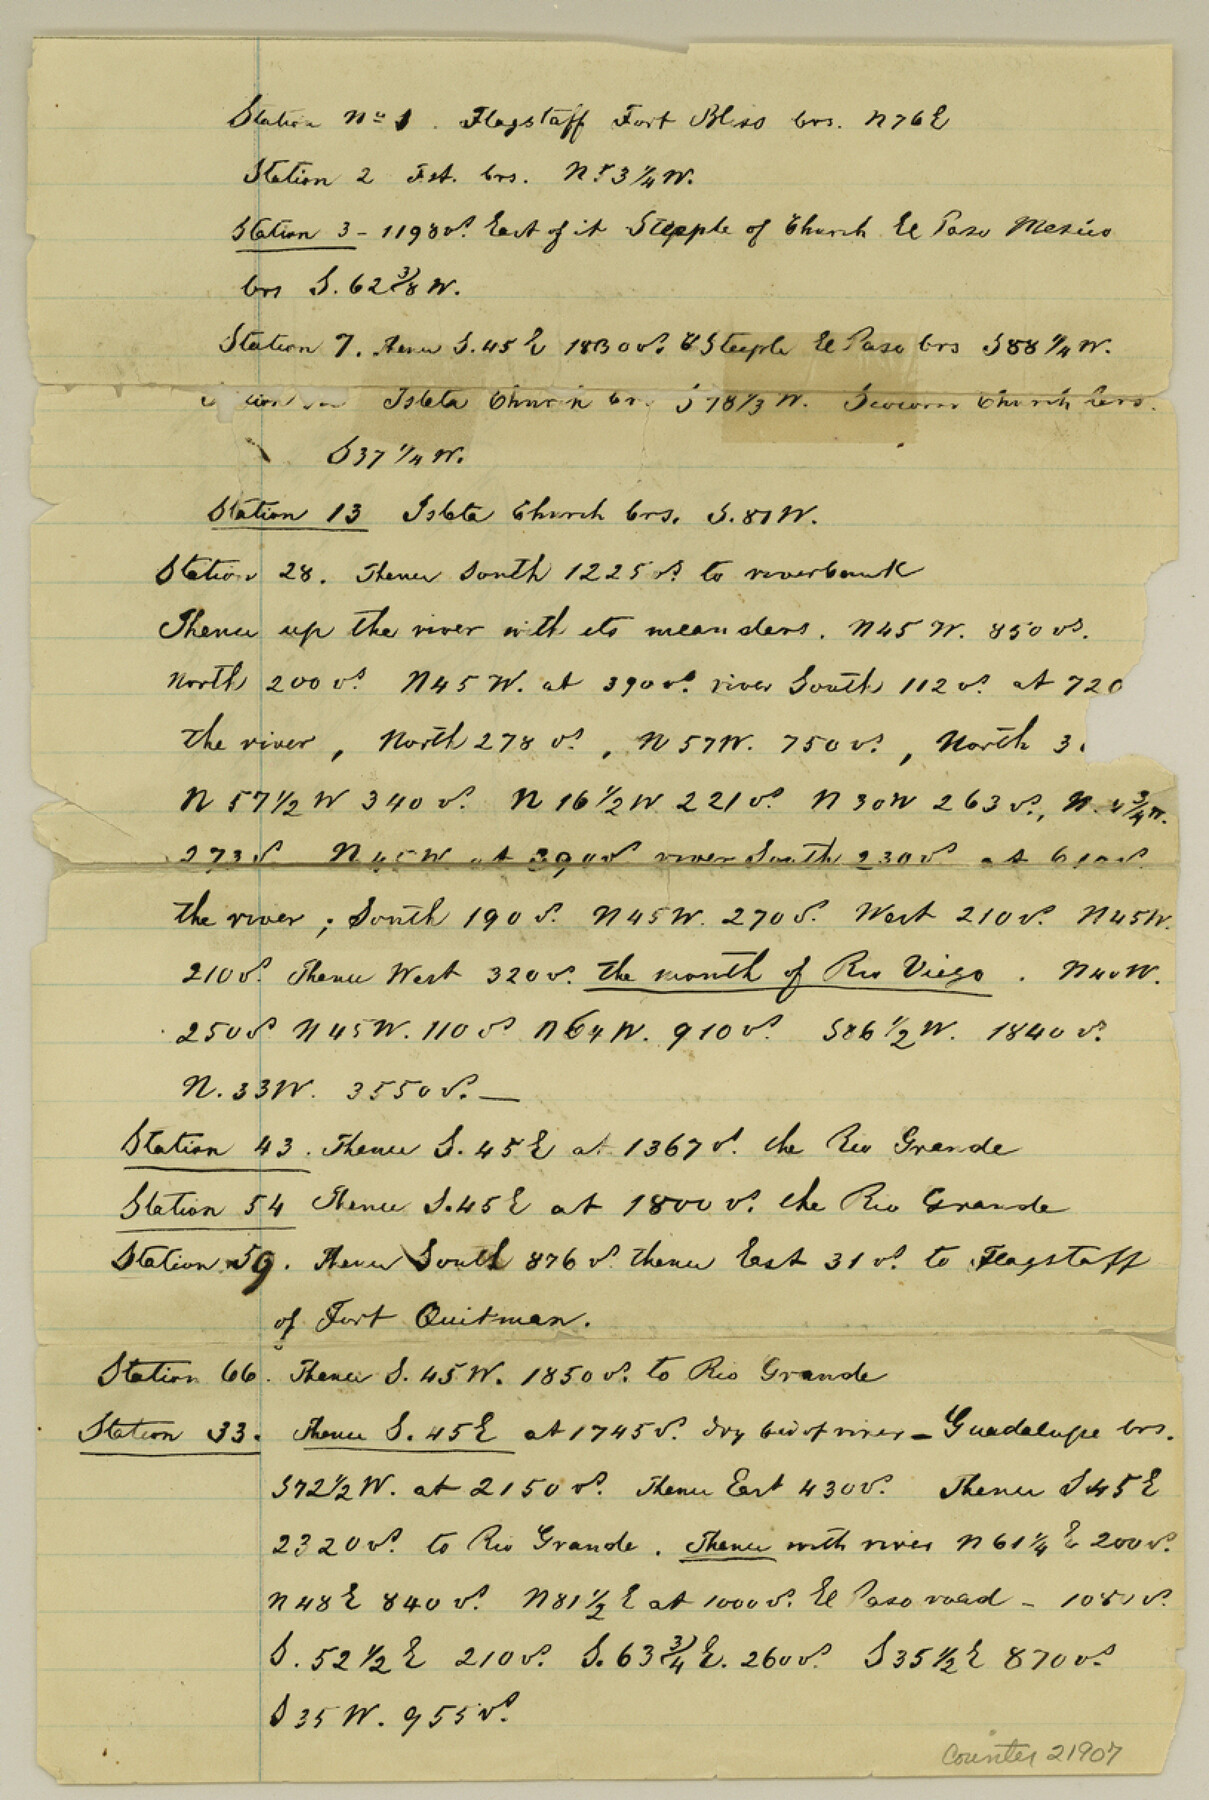 Station No 1. Flagstaff Fort Bliss brs. N76E
Station 2 Fst. brs. N 3 1/4 W.
Station 3 - 1198 vs. East of it Stepple of Church El Paso Mexico
brs S. 62 3/8 W.
Station 7. Thence S. 45 E 1830 vs. Steeple El Paso brs S88 1/4 W.
Isleta Church br. S 78 1/3 W. Socorro Church brs.
S37 1/4 W.
Station 13 Isleta Church brs. S. 81 W.
Station 28. Thence South 1225 vs. to riverbank
Thence up the river with its meanders. N45 W. 850 vs.
North 200 vs. N45 W. at 390 vs. river South 112 vs. at 720
the river, North 278 vs., N 57 W. 750 vs., North 3
N 57 1/2 W 340 vs. N 16 1/2 W 221 vs. N 30 W 263 vs., N. 4 3/4 W.
273 vs N 45 W at 390 vs river South 230 vs at vs
the river; South 190 vs. N45W. 270 vs. West 210 vs. N45W.
210 vs. Thence West 320 vs. the mouth of Rio Viego. N40W.
250 vs N45W. 110 vs N64W. 910 vs. S86 1/2 W. 1840 vs.
N. 33W. 3550 vs. —
Station 43. Thence S. 45 E at 1367 vs. the Rio Grande
Station 54 Thence S. 45 E at 1800 vs. the Rio Grande
Station 59. Thence South 876 vs. thence East 31 vs. to Flagstaff
of Fort Quitman.
Station 66. Thence S. 45 W. 1850 vs. to Rio Grande
Station 33. Thence S. 45 E at 1745 vs. dry bed of river - Guadalupe brs.
S72 1/2 W. at 2150 vs. Thence East 430 vs. Thence S.45 E
2320 vs. to Rio Grande. Thence with river N 61 1/4 E 200 vs.
N48E 840 vs. N81 1/2 E at 1000 vs. El Paso road - 1080 vs.
S. 52 1/2 E 210 vs. S. 63 3/4 E. 260 vs. S35 1/2 E 870 vs.
S35 W. 955 vs.
Counter 21907